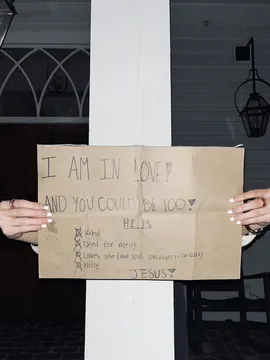 I AM IN LOVE!
AND YOU COULD BE TOO!
HE IS
Kind
Died for me
Loves me (and you) unconditionally
Holy
JESUS!